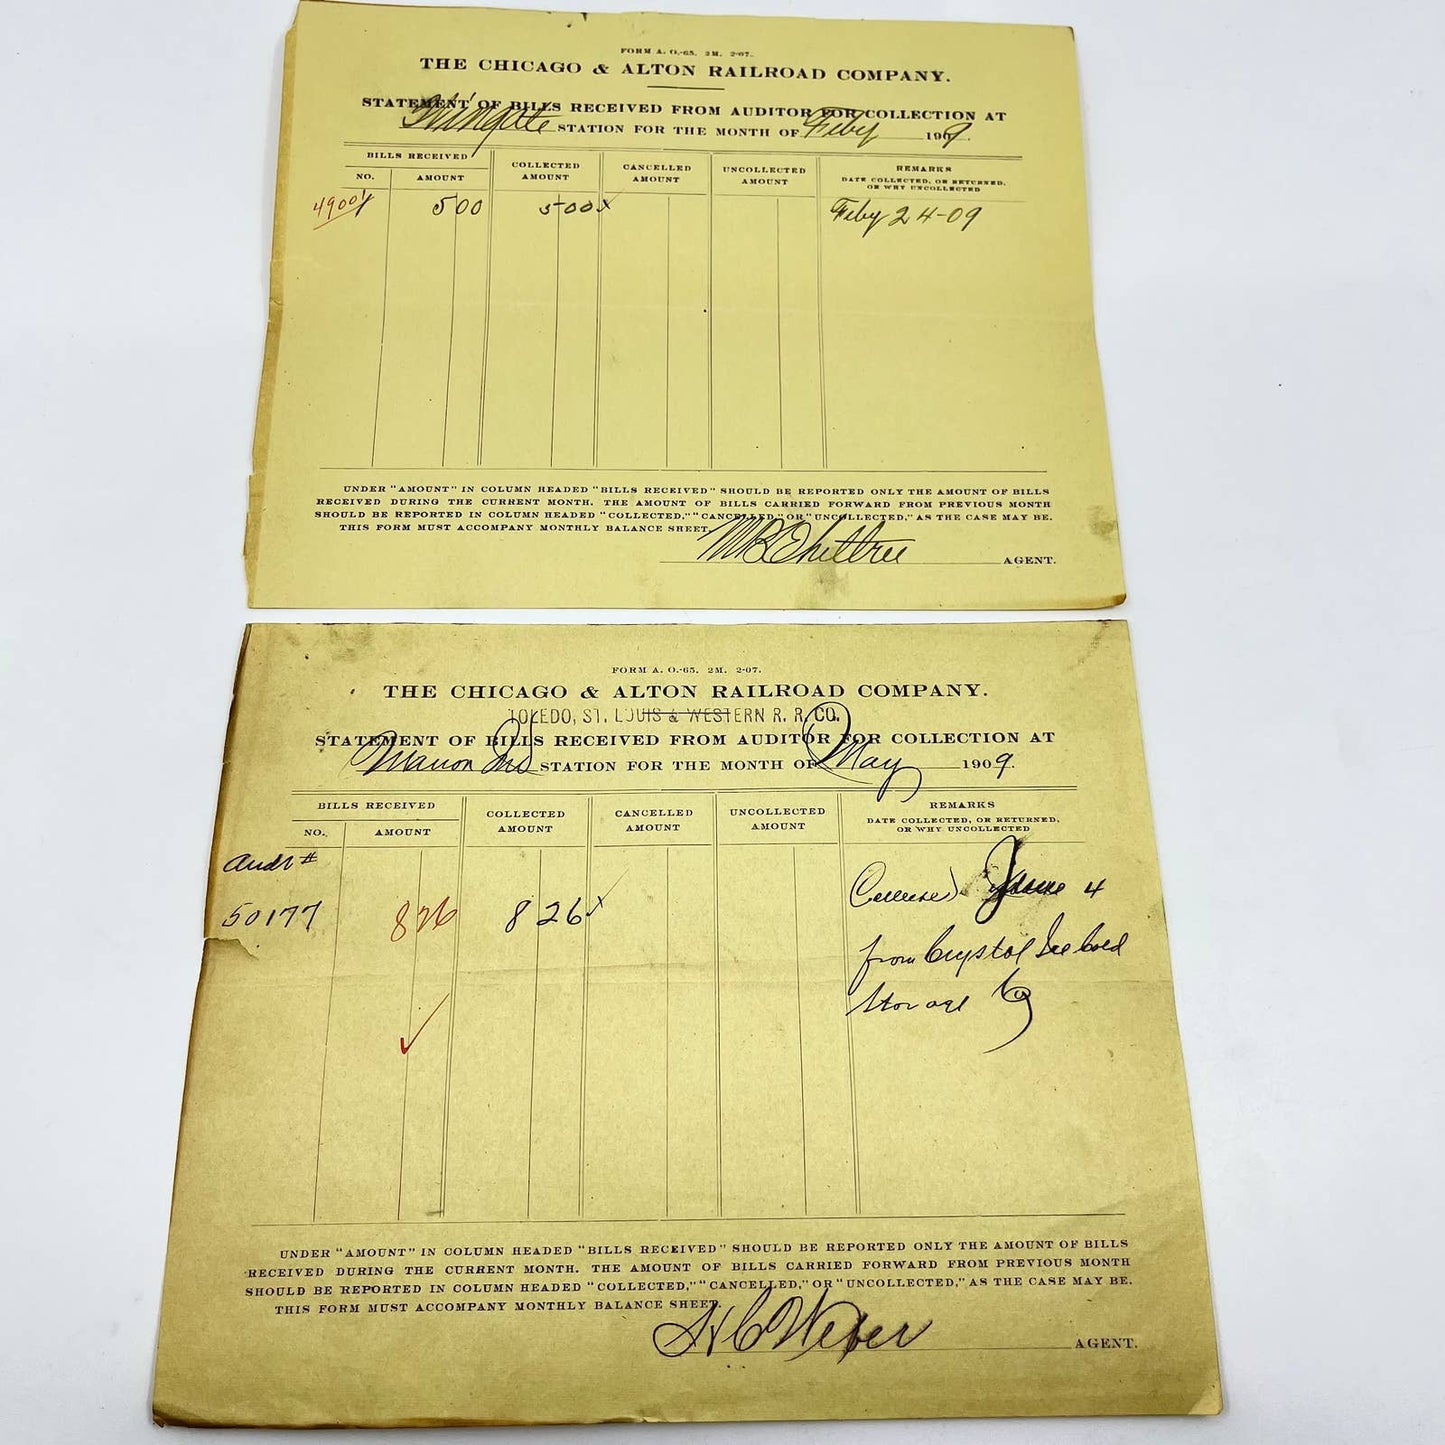 FORM A. O.-65. 2M. 2-07.
THE CHICAGO & ALTON RAILROAD COMPANY.
STATEMENT OF BILLS RECEIVED FROM AUDITOR FOR COLLECTION AT
Wingate STATION FOR THE MONTH OF Feby 1909.
BILLS RECEIVED
NO. AMOUNT
COLLECTED AMOUNT
CANCELLED AMOUNT
UNCOLLECTED AMOUNT
REMARKS
DATE COLLECTED, OR RETURNED,
OR WHY UNCOLLECTED
5 00 5 00 Feby 24-09
UNDER "AMOUNT" IN COLUMN HEADED "BILLS RECEIVED" SHOULD BE REPORTED ONLY THE AMOUNT OF BILLS
RECEIVED DURING THE CURRENT MONTH. THE AMOUNT OF BILLS CARRIED FORWARD FROM PREVIOUS MONTH
SHOULD BE REPORTED IN COLUMN HEADED "COLLECTED," "CANCELLED," OR "UNCOLLECTED," AS THE CASE MAY BE.
THIS FORM MUST ACCOMPANY MONTHLY BALANCE SHEET.
AGENT.
FORM A. O.-65. 2M. 2-07.
THE CHICAGO & ALTON RAILROAD COMPANY.
TOLEDO, ST. LOUIS & WESTERN R. R. CO.
STATEMENT OF BILLS RECEIVED FROM AUDITOR FOR COLLECTION AT
Marion Ind STATION FOR THE MONTH OF May 1909.
BILLS RECEIVED
NO. AMOUNT
COLLECTED AMOUNT
CANCELLED AMOUNT
UNCOLLECTED AMOUNT
REMARKS
DATE COLLECTED, OR RETURNED,
OR WHY UNCOLLECTED
Audr #
50177 8 26 8 26 June 4
from Crystal Ice Cold
Storage Co
UNDER "AMOUNT" IN COLUMN HEADED "BILLS RECEIVED" SHOULD BE REPORTED ONLY THE AMOUNT OF BILLS
RECEIVED DURING THE CURRENT MONTH. THE AMOUNT OF BILLS CARRIED FORWARD FROM PREVIOUS MONTH
SHOULD BE REPORTED IN COLUMN HEADED "COLLECTED," "CANCELLED," OR "UNCOLLECTED," AS THE CASE MAY BE.
THIS FORM MUST ACCOMPANY MONTHLY BALANCE SHEET.
H C Weber AGENT.